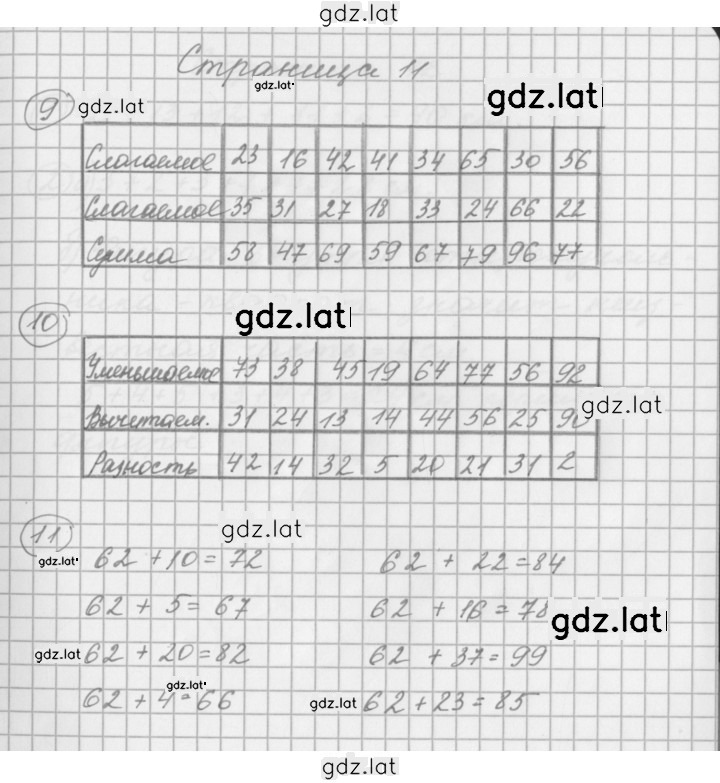 gdz.lat
Страница 11
gdz.lat
gdz.lat
9 gdz.lat
Слагаемое 23 16 42 41 34 65 30 56
Слагаемое 35 31 27 18 33 24 66 22
Сумма 58 47 69 59 67 79 96 77
10 gdz.lat
Уменьшаемое 73 38 45 19 64 77 56 92
gdz.lat
Вычитаем. 31 24 13 14 44 56 25 90
Разность 42 14 32 5 20 21 31 2
11 gdz.lat
gdz.lat 62 + 10 = 72 62 + 22 = 84
62 + 5 = 67 62 + 16 = 78 gdz.lat
gdz.lat 62 + 20 = 82 62 + 37 = 99
gdz.lat
62 + 4 = 66 gdz.lat 62 + 23 = 85
gdz.lat